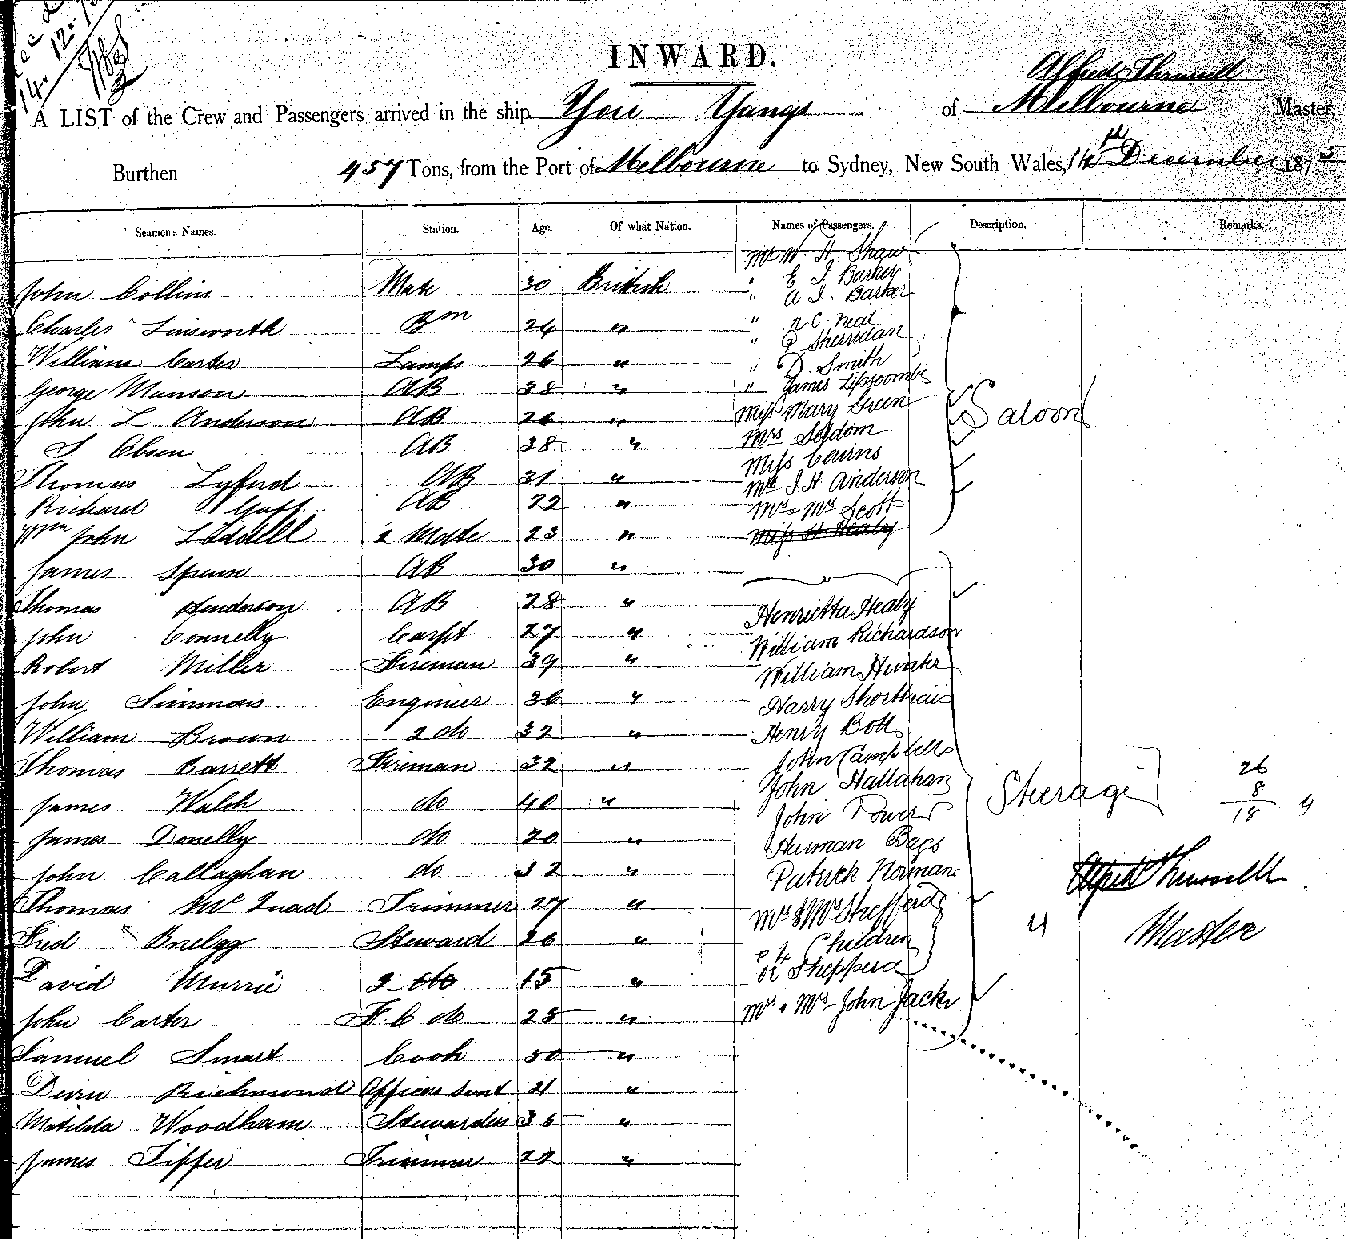 INWARD.
Alfred Thrussell
A LIST of the Crew and Passengers arrived in the ship You Yangs of Melbourne Master,
Burthen 457 Tons, from the Port of Melbourne to Sydney, New South Wales, 14th December 187
Seamens Names. Station. Age. Of what Nation. Names of Passengers. Description. Remarks.
Mr W H Shaw
John Collins Mate 30 British " E J Barker
" A J. Barker
Charles Linworth Bm 24 " "
" Sheridan
William Carter Lamps 26 " " D Smith
George Manson AB 38 " " James Lipscombe
John L Anderson AB 26 " Miss Mary Green Saloon
AB 38 " Mrs Seldom
Miss Cearns
Thomas Lyford AB 31 " Mr J. H. Anderson
Richard AB 22 " Mr & Mrs Scott
Wm John Liddell 2 Mate 23 " Miss H Healy
James AB 30 "
Thomas Henderson AB 28 " Henrietta Healy
John Connelly Carpt 27 " William Richardson
Robert Miller Fireman 39 " William Hunter
John Simmons Engineer 36 " Harry
William Brown 2 do 32 " Henry Bott
Thomas Barrett Fireman 32 " John Campbell
John Hallahan
James Walsh do 40 " John Power Steerage 26
8
18
James Donelly do 20 " Herman
John Callaghan do 32 " Patrick Norman Alfred Thrussell
Thomas Trimmer 27 " Mr & Mrs Shepperd 4 Master
Fred Steward 26 " & 4 Children
David Murrie 2 do 15 " Shepperd
John Carter F. C do 25 " Mr & Mrs John Jack
Samuel Smart Cook 30 "
Richmond Officers Servt 21 "
Matilda Woodham Stewardess 35 "
James Tipper Trimmer 22 "